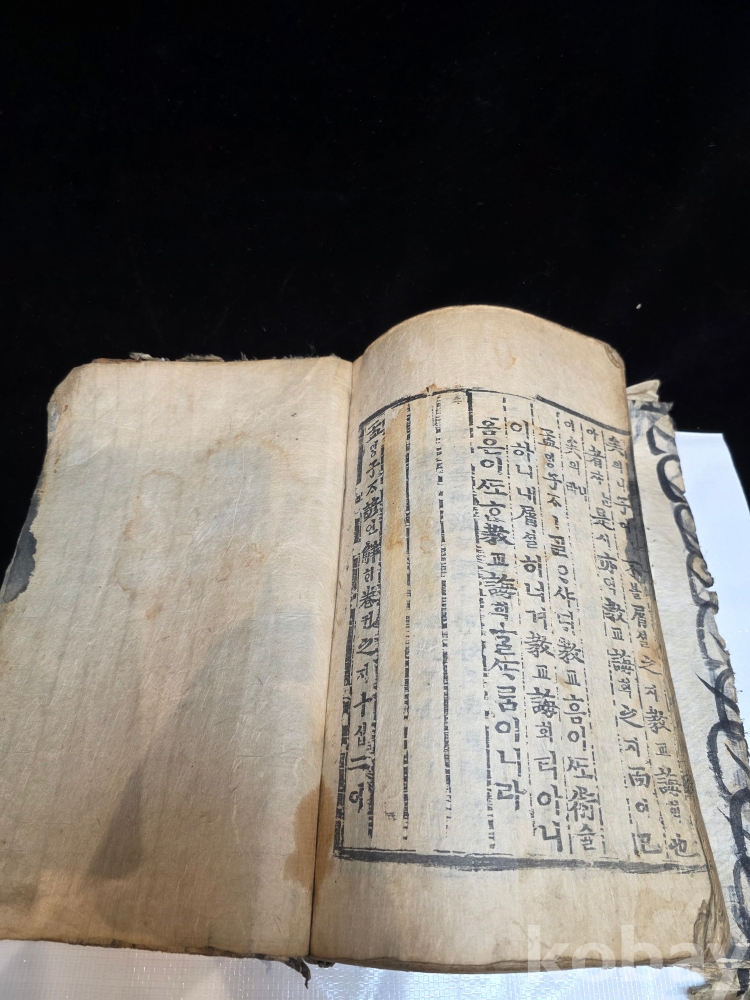 矣의니予여ㅣ不블屑셜之지教교誨회也
야者쟈ᄂᆞᆫ是시亦역教교誨회之지而이已
이矣의라
孟ᄆᆡᆼ子ᄌᆞㅣᄀᆞᆯᄋᆞ샤ᄃᆡ教교홈이ᄯᅩ術슐
이하니내屑셜히너겨教교誨회티아니
홈은이ᄯᅩᄒᆞᆫ教교誨회ᄒᆞᆯᄯᆞᄅᆞᆷ이니라
孟ᄆᆡᆼ子ᄌᆞ諺언解ᄒᆡ卷권之지十십二이
kobay